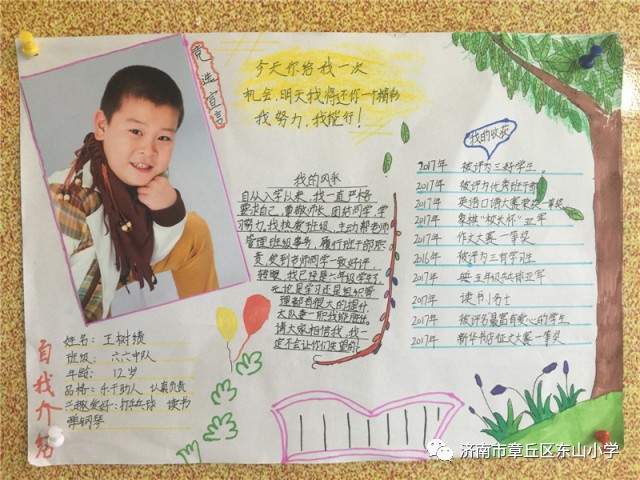 竞选宣言
今天你给我一次
机会，明天我将还你一个精彩
我努力，我能行！
我的风采
自从入学以来，我一直严格
要求自己，尊敬师长，团结同学，学
习努力，我热爱班级，主动帮老师
管理班级事务，履行班干部职
责，受到老师同学一致好评，
转眼，我已经是六年级学生了，
无论是学习还是组织管
理都有很大的提升，
大队委一职我能胜任。
请大家相信我，我一
定不会让你们失望的！
我的收获
2017年 被评为三好学生
2017年 被评为优秀班干部
2017年 英语口语大赛荣获一等奖
2017年 象棋“校长杯”亚军
2017年 作文大赛一等奖
2016年 被评为三好学习生
2017年 五年级乒乓球亚军
2017年 读书小名士
2017年 被评为最富有爱心的学生
2017年 新华书店征文大赛一等奖
自我介绍
姓名：王树绩
班级：六六中队
年龄：12岁
品格：乐于助人 认真负责
兴趣爱好：打乒乓球 读书
弹钢琴
济南市章丘区东山小学